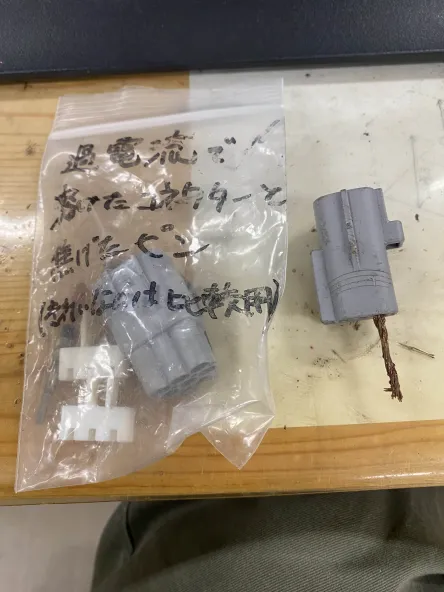 過電流で
溶けたコネクターと
焦げたピン
(きれいなのは比較用)